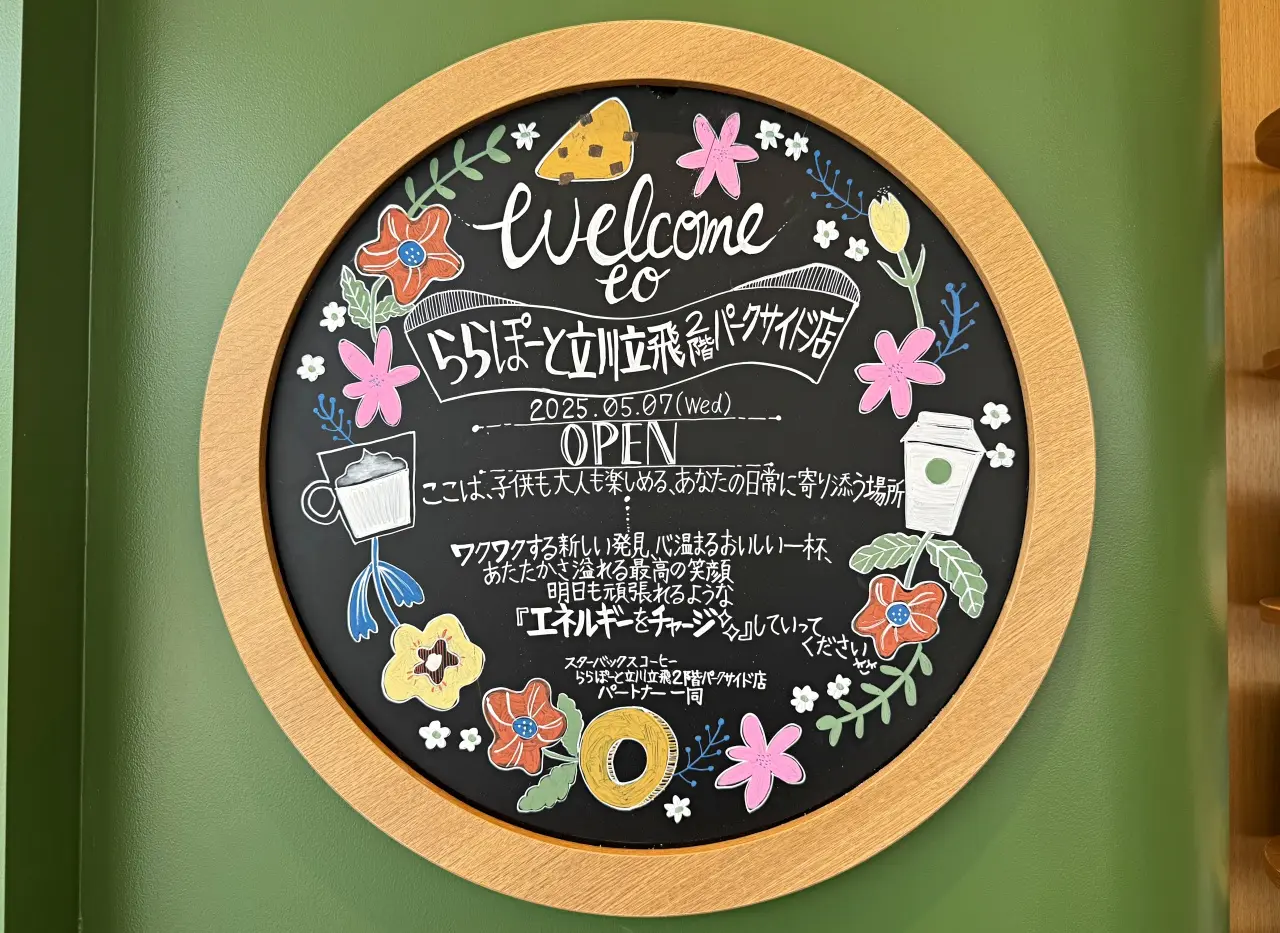 Welcome
to
ららぽーと立川立飛2階パークサイド店
2025.05.07(Wed)
OPEN
ここは、子供も大人も楽しめる、あなたの日常に寄り添う場所
ワクワクする新しい発見、心温まるおいしい一杯、
あたたかさ溢れる最高の笑顔
明日も頑張れるような
『エネルギーをチャージ✨』していって
ください
スターバックスコーヒー
ららぽーと立川立飛2階パークサイド店
パートナー一同